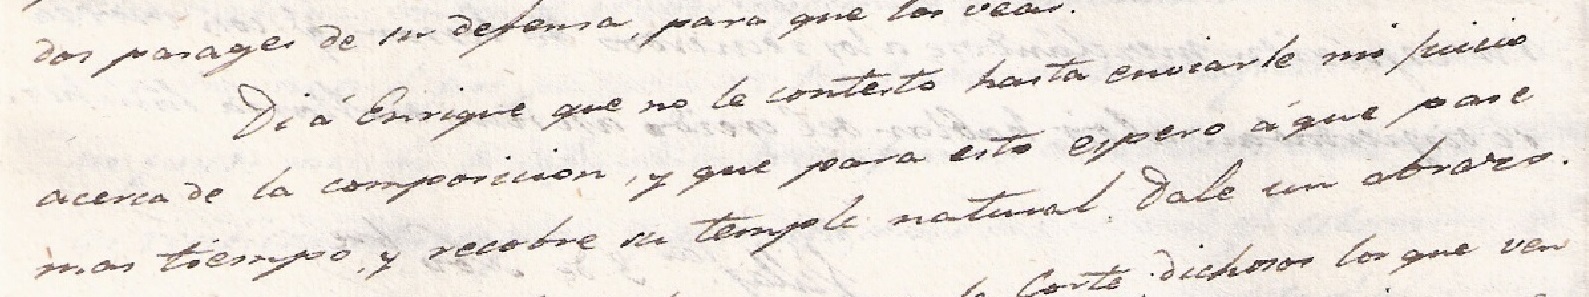 dos parages de su defensa, para que los veas.
Di á Enrique que no le contesto hasta enviarle mi juicio
acerca de la composicion, y que para esto espero á que pase
mas tiempo, y recobre su temple natural. Dale un abrazo.
la Corte; dichosos los que ven